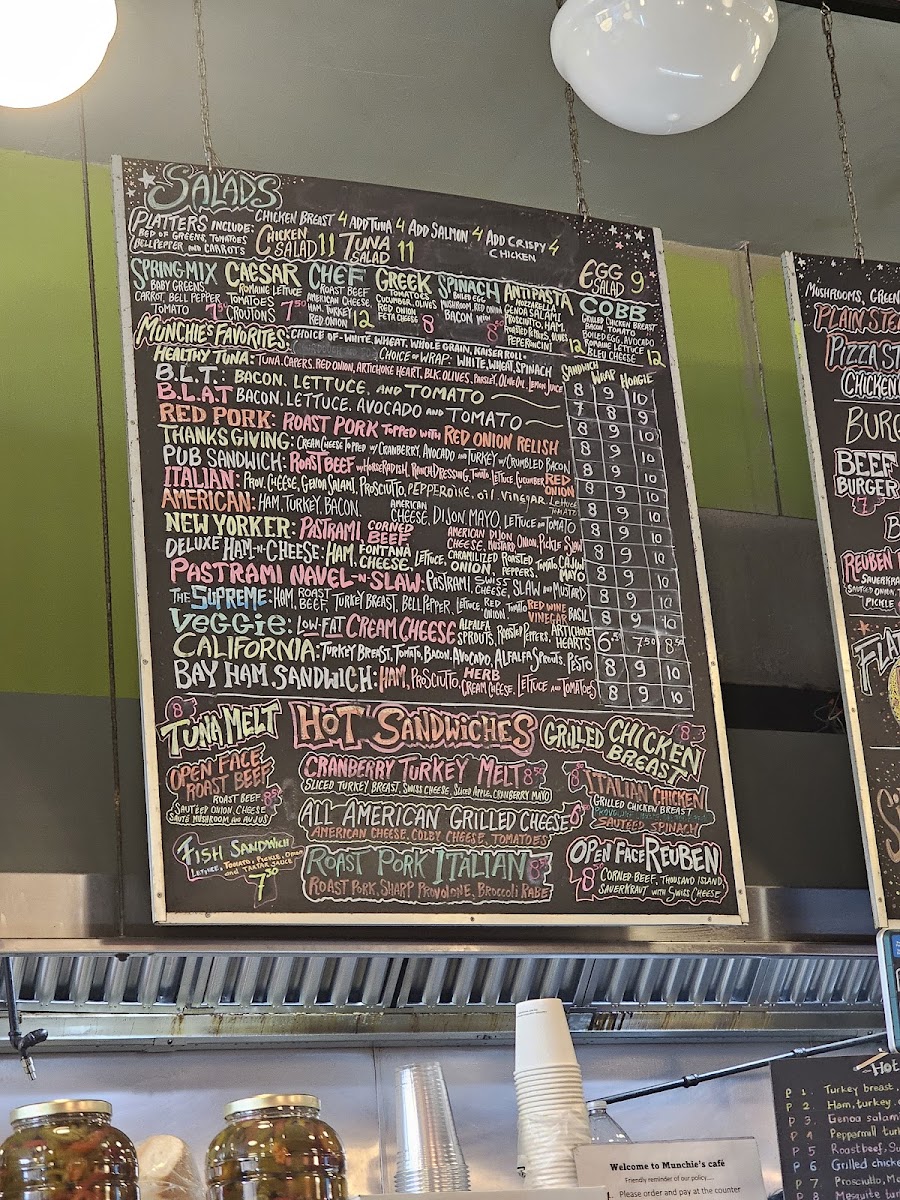 SALADS
PLATTERS INCLUDE:
BED OF GREENS, TOMATOES
BELLPEPPER AND CARROTS
CHICKEN BREAST 4 ADD TUNA 4 ADD SALMON 4 ADD CRISPY CHICKEN 4
CHICKEN SALAD 11 TUNA SALAD 11
EGG SALAD 9
SPRING MIX
BABY GREENS
CARROT, BELL PEPPER
TOMATO 7.50
CAESAR
ROMAINE LETTUCE
TOMATOES
CROUTONS 7.50
CHEF
ROAST BEEF
AMERICAN CHEESE,
HAM, TURKEY
RED ONION 12
GREEK
TOMATOES
CUCUMBER, OLIVES
RED ONION
FETA CHEESE 8
SPINACH
BOILED EGG
MUSHROOM, RED ONION
BACON WITH
ANTIPASTA
MOZZARELLA,
GENOA SALAMI
PROSCIUTTO, HAM,
ROASTED PEPPERS, OLIVES
PEPERONCINI 12
COBB
GRILLED CHICKEN BREAST
BACON, TOMATO
BOILED EGG, AVOCADO
ROMAINE LETTUCE
BLEU CHEESE 12
MUNCHIE'S FAVORITES: CHOICE OF - WHITE, WHEAT, WHOLE GRAIN, KAISER ROLL
CHOICE OF WRAP: WHITE, WHEAT, SPINACH
SANDWICH WRAP HOAGIE
HEALTHY TUNA: TUNA, CAPERS, RED ONION, ARTICHOKE HEART, BLK. OLIVES, PARSLEY, OLIVE OIL, LEMON JUICE 8 9 10
B.L.T.: BACON, LETTUCE, AND TOMATO 7 8 9
B.L.A.T BACON, LETTUCE, AVOCADO AND TOMATO 8 9 10
RED PORK: ROAST PORK TOPPED WITH RED ONION RELISH 8 9 10
THANKSGIVING: CREAM CHEESE TOPPED W/ CRANBERRY, AVOCADO AND TURKEY W/ CRUMBLED BACON 8 9 10
PUB SANDWICH: ROAST BEEF W/ HORSERADISH, RANCH DRESSING, TOMATO, LETTUCE, CUCUMBER RED ONION 8 9 10
ITALIAN: PROV. CHEESE, GENOA SALAMI, PROSCIUTTO, PEPPERONE, OIL, VINEGAR, LETTUCE TOMATO 8 9 10
AMERICAN: HAM, TURKEY, BACON, AMERICAN CHEESE, DIJON, MAYO, LETTUCE AND TOMATO 8 9 10
NEW YORKER: PASTRAMI, CORNED BEEF AMERICAN CHEESE, DIJON MUSTARD, ONION, PICKLE & SLAW 8 9 10
DELUXE HAM-N-CHEESE: HAM, FONTANA CHEESE, LETTUCE, CARAMILIZED ONION, ROASTED PEPPERS, TOMATO, CAJUN MAYO 8 9 10
PASTRAMI NAVEL-N-SLAW: PASTRAMI, SWISS CHEESE, SLAW AND MUSTARD 8 9 10
THE SUPREME: HAM, ROAST BEEF, TURKEY BREAST, BELL PEPPER, LETTUCE, RED ONION, TOMATO RED WINE VINEGAR BASIL 8 9 10
VEGGIE: LOW-FAT CREAM CHEESE ALFALFA SPROUTS, ROASTED PEPPERS, ARTICHOKE HEARTS 6.50 7.50 8.50
CALIFORNIA: TURKEY BREAST, TOMATO, BACON, AVOCADO, ALFALFA SPROUTS, PESTO 8 9 10
BAY HAM SANDWICH: HAM, PROSCIUTTO, HERB CREAM CHEESE, LETTUCE AND TOMATOES 8 9 10
TUNA MELT
OPEN FACE
ROAST BEEF
ROAST BEEF
SAUTÉED ONION, CHEESE
SAUTÉ MUSHROOM AND AU JUS
FISH SANDWICH
LETTUCE, TOMATO, PICKLE, ONION
AND TARTAR SAUCE
7.50
HOT SANDWICHES
CRANBERRY TURKEY MELT
SLICED TURKEY BREAST, SWISS CHEESE, SLICED APPLE, CRANBERRY MAYO
ALL AMERICAN GRILLED CHEESE
AMERICAN CHEESE, COLBY CHEESE, TOMATOES
ROAST PORK ITALIAN
ROAST PORK, SHARP PROVOLONE, BROCCOLI RABE
GRILLED CHICKEN
BREAST
ITALIAN CHICKEN
GRILLED CHICKEN BREAST
SAUTÉED SPINACH
OPEN FACE REUBEN
8
CORNED BEEF, THOUSAND ISLAND
SAUERKRAUT WITH SWISS CHEESE
MUSHROOMS, GREEN
PLAIN STE
PIZZA ST
(CHICKEN
BURG
BEEF
BURGER
REUBEN
SAUERKRA
PICKLE
FLAT
Hot
P 1. Turkey breast,
P 2 Ham, turkey
P 3. Genoa salam
P 4 Peppermill tur
P 5 Roastbeef, Su
P 6 Grilled chicke
P 7 Prosciutto, Mo
Mesquite tur
Welcome to Munchie's café
Friendly reminder of our policy....
Please order and pay at the counter